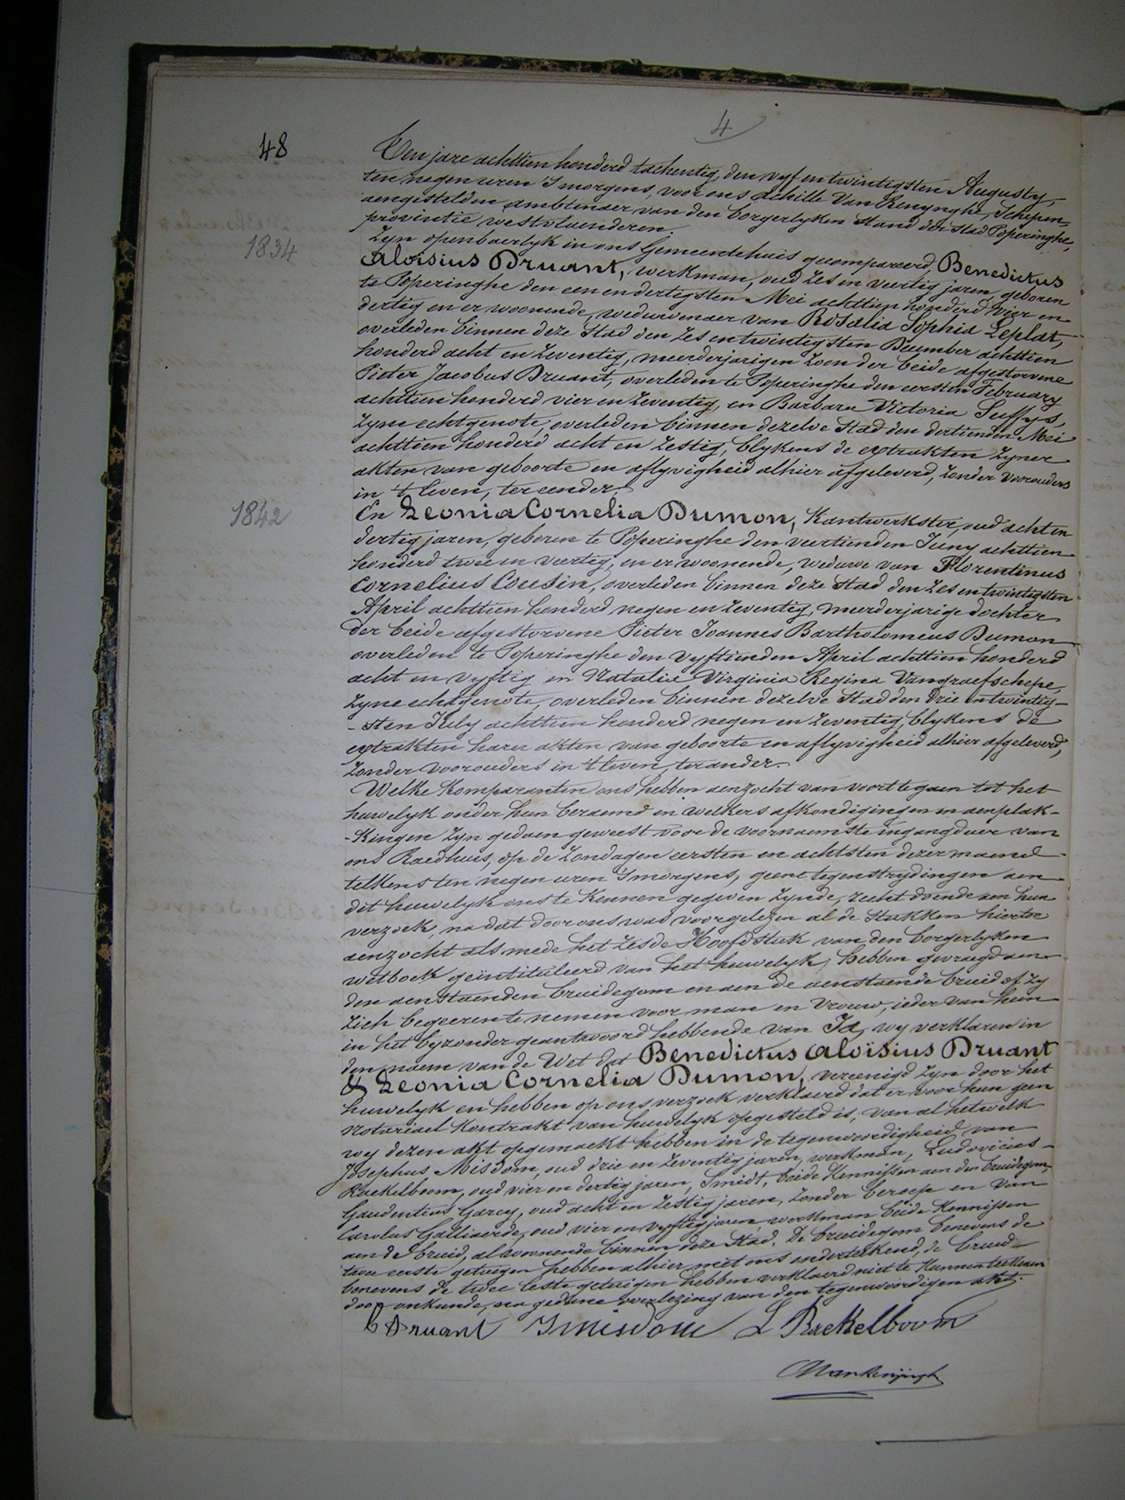 4
48
Ten jare achttien honderd tachentig, den vyf en twintigsten Augusty,
ten negen uren 's morgens, voor ons Achille Van Renynghe, Schepen-
aengestelden ambtenaer van den borgerlyken Stand der Stad Poperinghe,
provintie westvlaenderen.
Zyn openbaerlyk in ons Gemeentehuis gecompareerd, Benedictus
1834
Aloïsius Druant, werkman, oud zes en veertig jaren, geboren
te Poperinghe den een en dertigsten Mei achttien honderd vier en
dertig en er woonende, weduwenaer van Rosalia Sophia Leplat,
overleden binnen deze Stad den zes en twintigsten December achttien
honderd acht en zeventig, meerderjarigen zoon der beide afgestorvene
Pieter Jacobus Druant, overleden te Poperinghe den eersten February
achttien honderd vier en zeventig, en Barbara Victoria Suffys,
zyne echtgenote, overleden binnen dezelve Stad den dertienden Mei
achttien honderd acht en zestig, blykens de extrakten zyner
akten van geboorte en aflyvigheid alhier afgeleverd, zonder voorouders
in 't leven, ter eender.
1842
En Leonia Cornelia Dumon, Kantwerkster, oud acht en
dertig jaren, geboren te Poperinghe den veertienden Juny achttien
honderd twee en veertig, en er woonende, weduwe van Florentinus
Cornelius Cousin, overleden binnen deze Stad den zes en twintigsten
April achttien honderd negen en zeventig, meerderjarige dochter
der beide afgestorvene Pieter Joannes Bartholomeus Dumon
overleden te Poperinghe den vyftienden April achttien honderd
acht en vyftig en Natalie Virginia Regina Vangraefschepe,
zyne echtgenote, overleden binnen dezelve Stad den drie en twintig-
-sten July achttien honderd negen en zeventig, blykens de
extrakten harer akten van geboorte en aflyvigheid alhier afgeleverd,
zonder voorouders in 't leven, ter ander.
Welke Komparanten ons hebben aenzocht van voort te gaen tot het
huwelyk onder hun beraemd en welkers afkondigingen en aenplak-
-kingen zyn gedaen geweest voor de voornaemste ingangdeure van
ons Raedhuis, op de zondagen eersten en achtsten dezer maend
telkens ten negen uren 's morgens, geene tegenstrydingen aen
dit huwelyk ons te Kennen gegeven zynde, recht doende aen hun
verzoek, na dat door ons was voorgelezen al de Stukken hiertoe
aenzocht als mede het zesde Hoofdstuk van den borgerlyken
wetboek geïntituleerd van het huwelyk, hebben gevraegd aen
den aenstaenden bruidegom en aen de aenstaende bruid of zy
zich begeeren te nemen voor man en vrouw, ieder van hun
in het byzonder geantwoord hebbende van Ja, wy verklaren in
den naem van de Wet dat Benedictus Aloïsius Druant
& Leonia Cornelia Dumon, vereenigd zyn door het
huwelyk en hebben op ons verzoek verklaerd dat er voor hun geen
Notariael Kontrakt van huwelyk opgesteld is, van al hetwelk
wy dezen akt opgemaekt hebben in de tegenwoordigheid van
Josephus Misdom, oud drie en zeventig jaren, werkman, Ludovicus
Raekelboom, oud vier en dertig jaren, Smidt, beide Kennissen aen den bruidegom
Gaudentius Garcy, oud acht en zestig jaren, zonder beroep en Van
Carolus Galliaerde, oud vier en vyftig jaren werkman beide Kennissen
aen de bruid, al woonende binnen deze Stad. De bruidegom benevens de
twee eerste getuigen hebben alhier met ons onderteekend, de bruid
benevens de twee leste getuigen hebben verklaerd niet te Kunnen teekenen
door onkunde, na gedane overlezing van den tegenwoordigen akt.
B Druant J Misdom L Raekelboom
AVanRenynghe